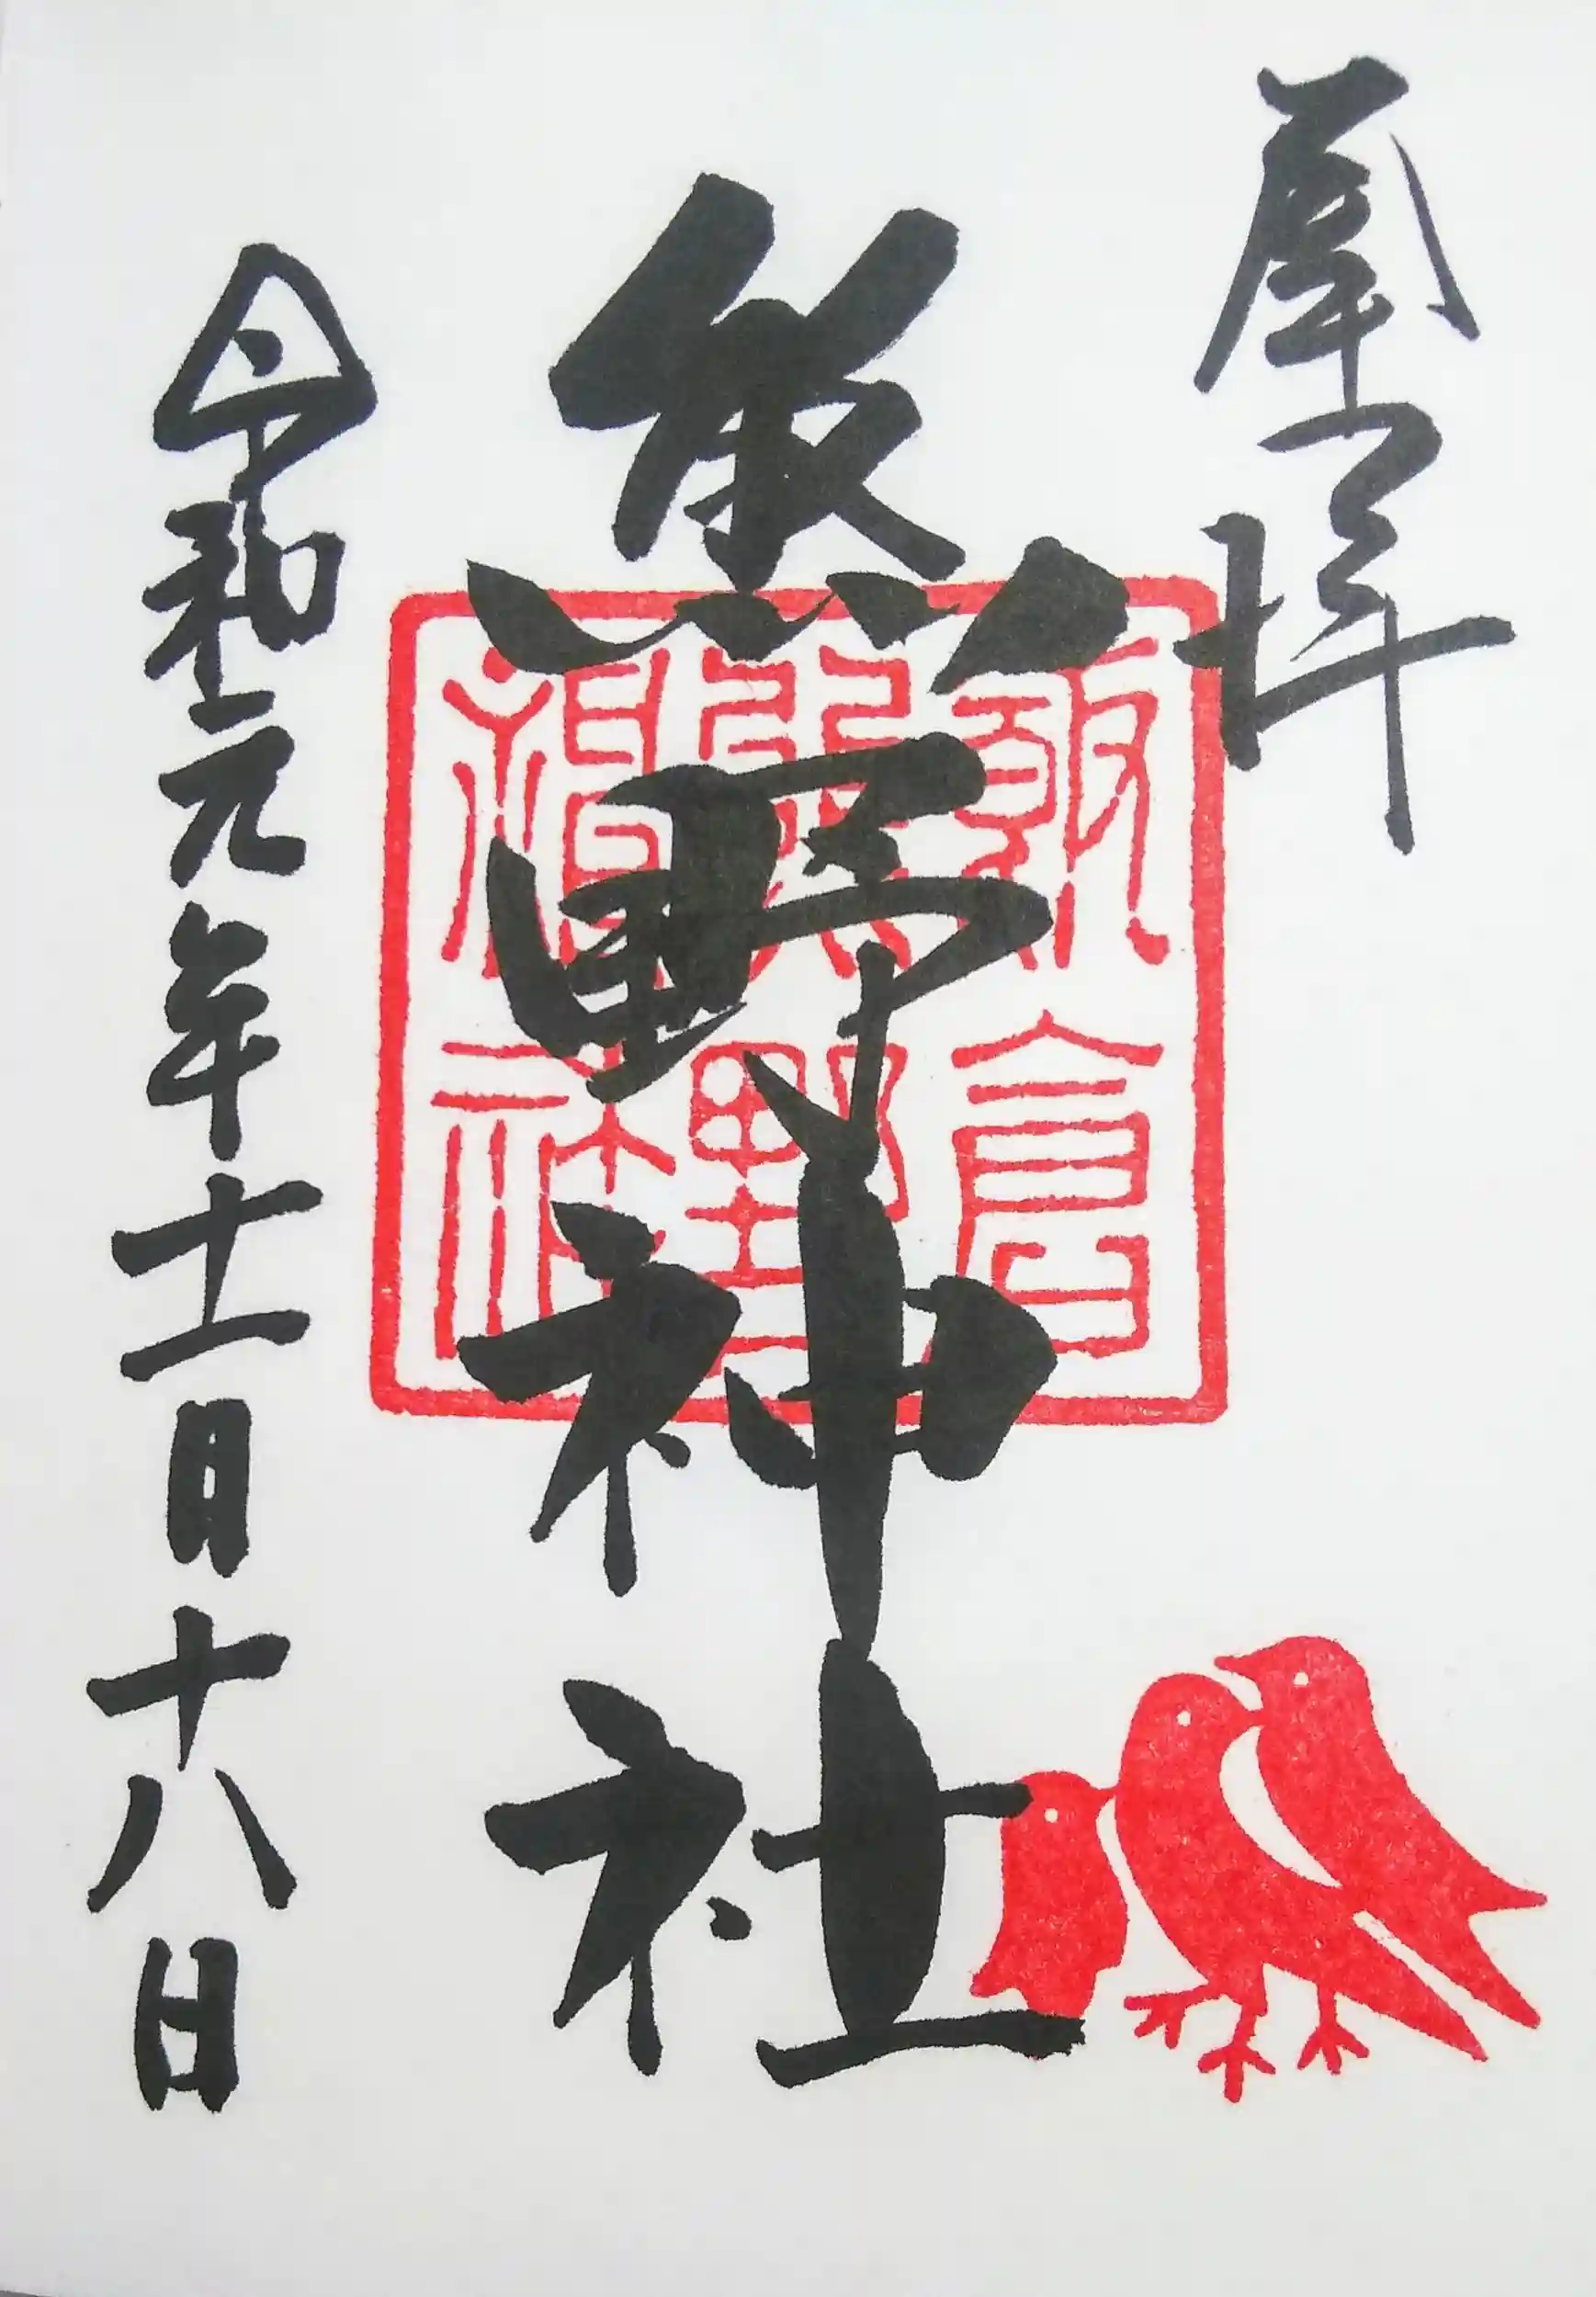 奉拝
熊野神社
令和元年十一月十八日
飯倉
熊野
神社